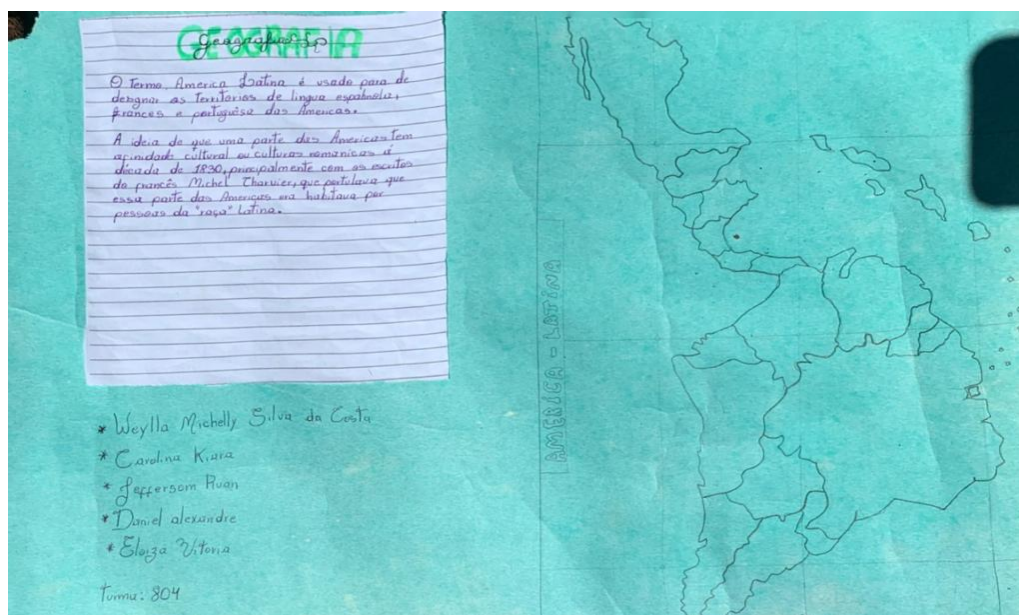 GEOGRAFIA
O Termo, America Latina é usado para de
dengnar as Territorios de lingua espanhola,
frances e portuguêsa das Americas.
A ideia de que uma parte das Americas tem
afinidade cultural ou culturas românicas á
década de 1830, principalmente com os escritos
do francês Michel Charvier, que postulava que
essa parte das Americas era habitava por
pessoas da "raça" Latina.
AMERICA-LATINA
* Weylla Michelly Silva da Costa
* Carolina Kiara
* Jeffersom Ruan
* Daniel alexandre
* Eloiza Vitoria
Turma: 804